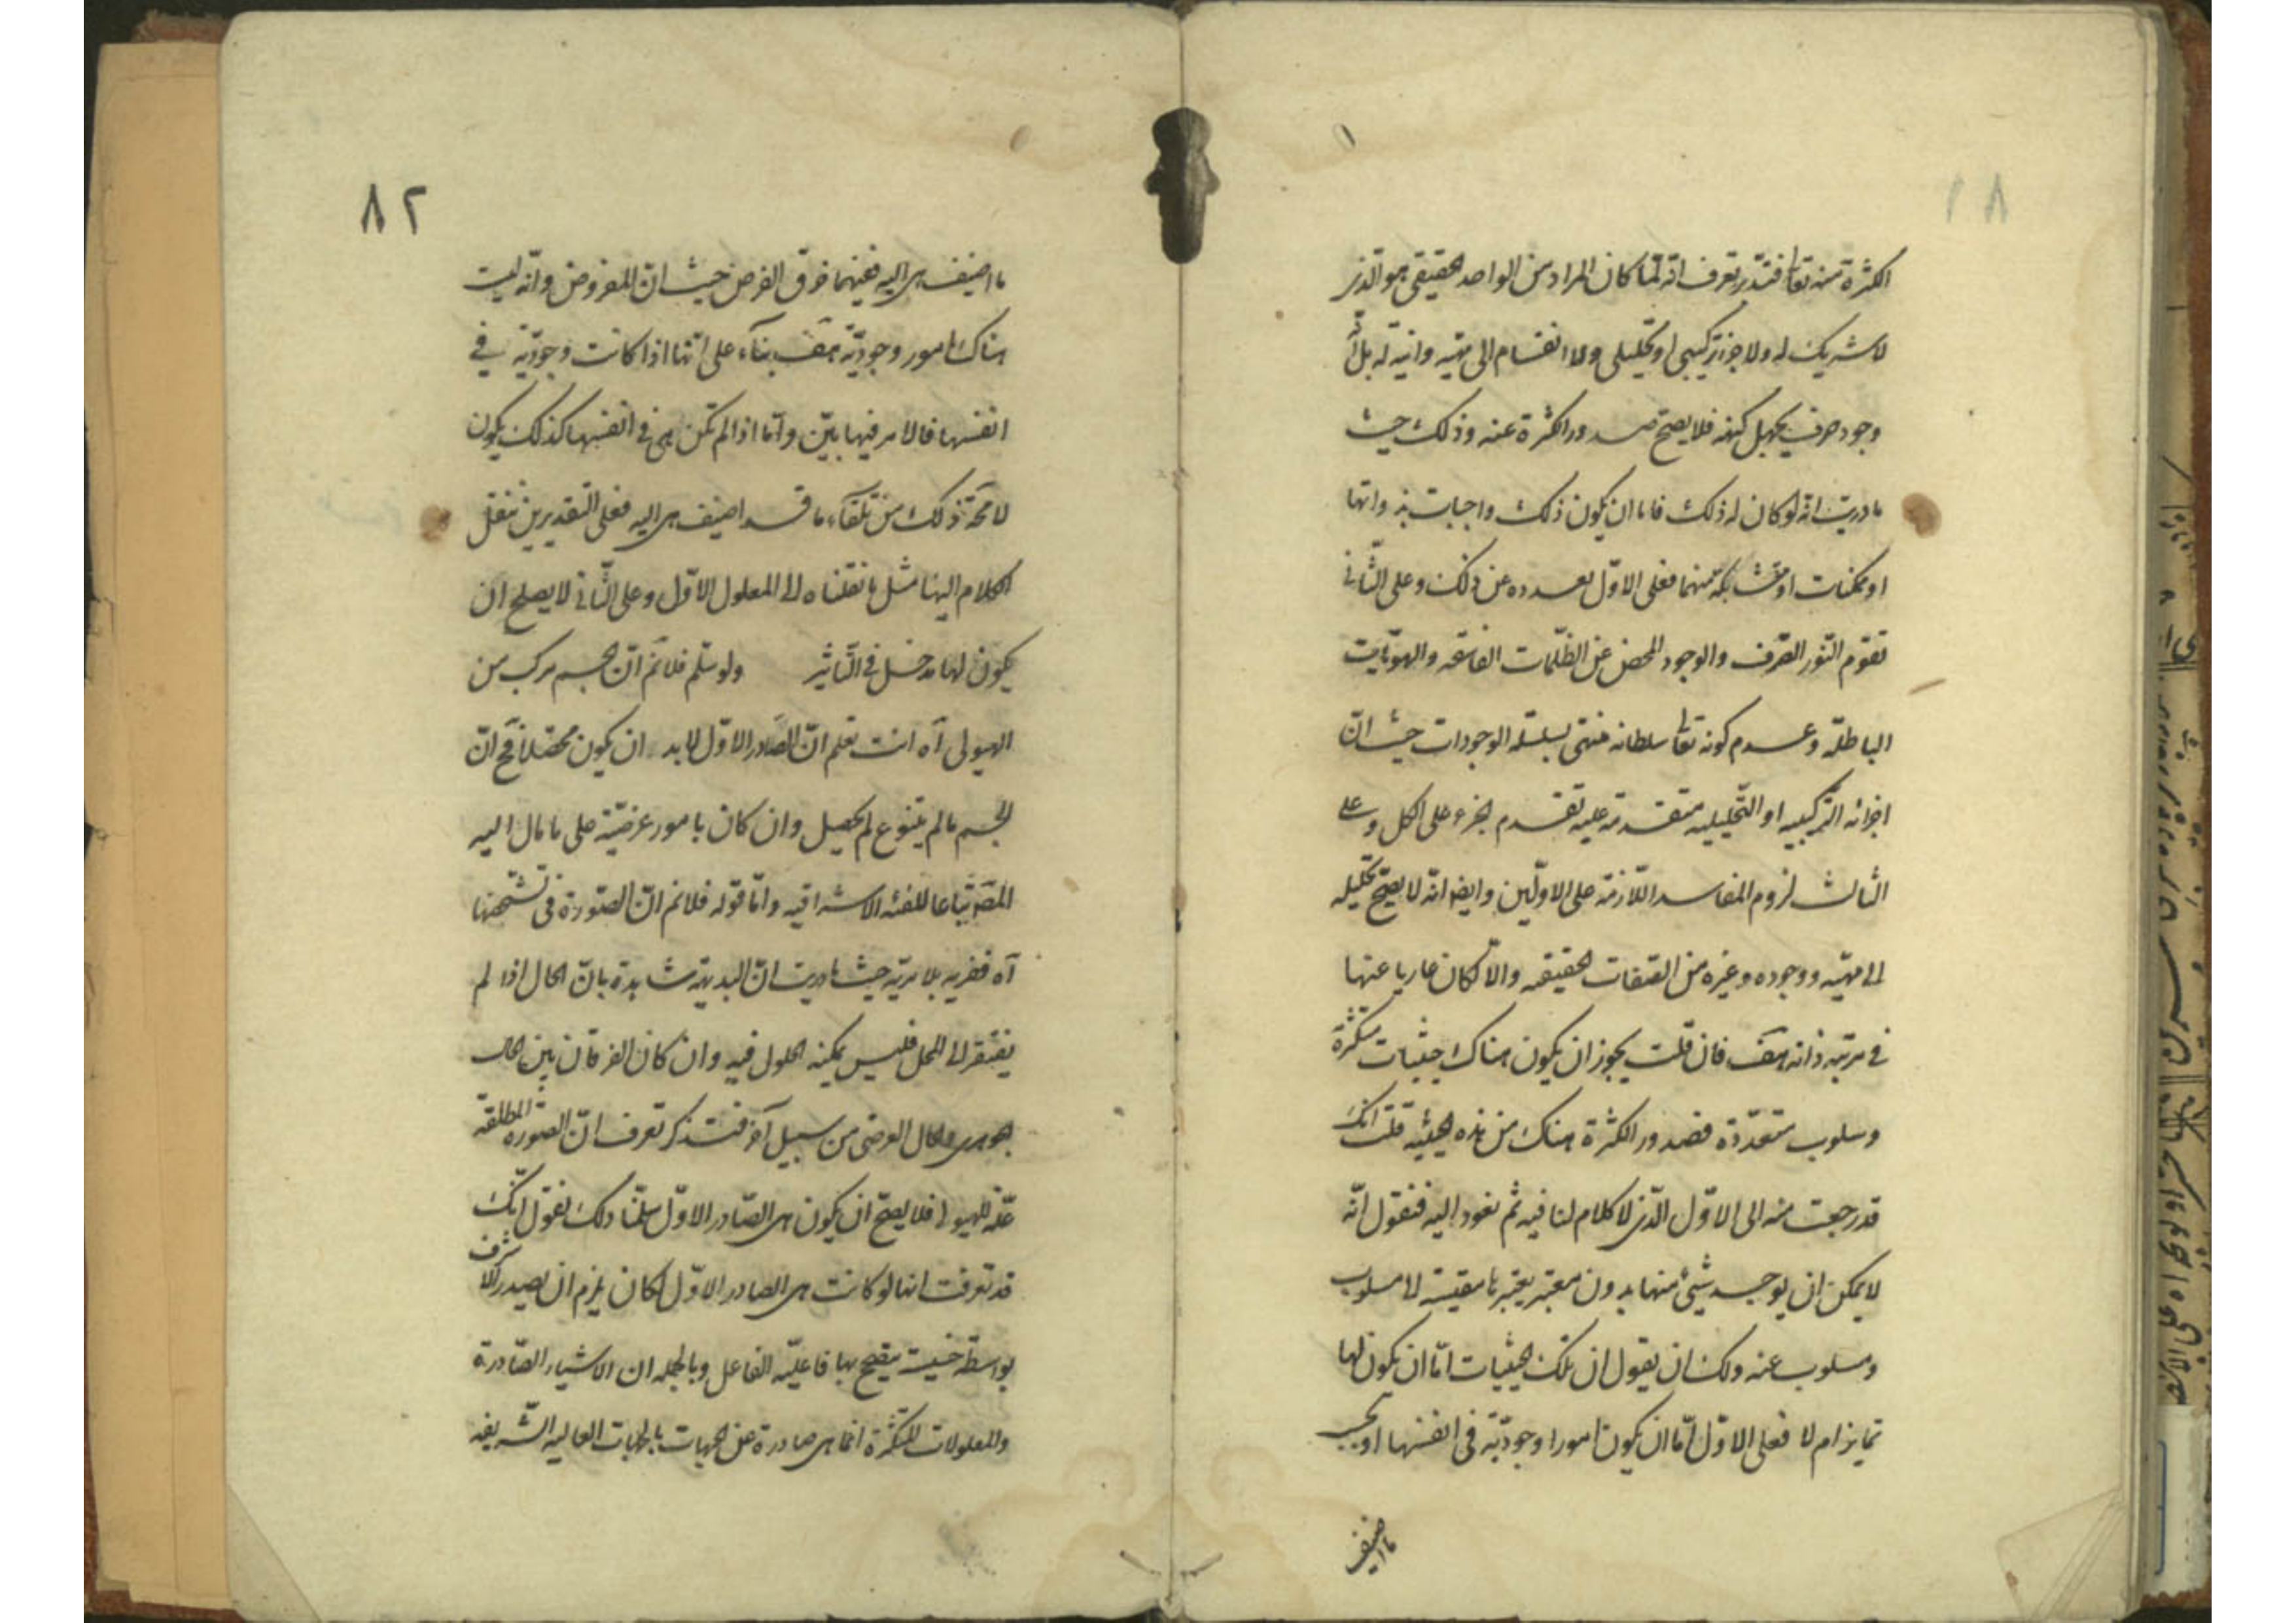 ٨١
الكثرة منه تعا فتدبر تعرف انه لمّا كان المراد من الواحد الحقيقى هو الّذى
لا شريك له ولا جزء تركيبى او تحليلى ولا انقسام الى مهيّه وانيّه له بل انّه
وجود صرف يجهل كنهه فلا يصح صدور الكثرة عنه وذلك حيث
ما دريت انّه لو كان له ذلك فاما ان يكون ذلك واجبات بذواتها
او ممكنات او متشابكة منهما فعلى الاوّل تعدده عن ذلك وعلى الثّانى
تقوّم النّور الصّرف والوجود المحض عن الظّلمات الغاسقه والهويّات
الباطلة وعدم كونه تعا سلطانه منتهى سلسلة الوجودات حيث انّ
اجزائه التّركيبيه او التّحليليه متقدمة عليه تقدم الجزء على الكل وعلى
الثالث لزوم المفاسد اللّازمة على الاوّلين وايضا انّه لا يصحّ تحليله
الى مهيّه ووجوده وغيره من الصّفات الحقيقيه والّا لكان عاريا عنها
فى مرتبه ذاته هف فان قلت يجوز ان يكون هناك حيثيات متكثّرة
وسلوب متعدّدة فصدور الكثرة هناك من هذه الحيثيه قلت انّك
قد رجعت منه الى الاوّل الّذى لا كلام لنا فيه ثم نعود اليه فنقول انّه
لا يمكن ان يوجد شيئ منها بدون معتبر يعتبرها مقيسة لا مسلوب
ومسلوب عنه ولك ان يقول ان تلك الحيثيات امّا ان يكون لها
تمايز ام لا فعلى الاوّل امّا ان يكون امورا وجوديّة فى انفسها او بحسب
ما اضيف
٨٢
ما اضيف هى اليه فعينهما خرق الفرض حيث انّ المفروض وانّه ليست
هناك امور وجوديّة هف بناء على انّها اذا كانت وجوديّة فى
انفسها فالامر فيها بيّن وامّا اذا لم تكن هى فى انفسها كذلك يكون
لا محة ذلك من تلقاء ما قد اضيف هى اليه فعلى التقديرين ننقل
الكلام اليها مثل ما نقلناه الى المعلول الاوّل وعلى الثّانى لا يصلح ان
يكون لها مدخل فى التّاثير ولو سلّم فلا نم انّ الجسم مركب من
الهيولى آه انت تعلم انّ الصّادر الاوّل لا بد ان يكون محصّلا فح انّ
الجسم ما لم يتنوع لم يحصل وان كان بامور عرضيّة على ما مال اليه
المصّ تباعا للفئه الاشراقيه وامّا قوله فلا نم انّ الصّورة فى تشخّصها
آه ففريه بلا مريّه حيث ما دريت انّ البديهة شاهدة بانّ الحال اذا لم
يفتقر الى المحل فليس يمكنه الحلول فيه وان كان الفرقان بين الحال
الجوهرى والحال العرضى من سبيل آخر فتذكر تعرف انّ الصّورة المطلقة
علّة للهيولى فلا يصحّ ان يكون هى الصّادر الاوّل سلّمنا ذلك نقول انّك
قد تعرفت انها لو كانت هى الصادر الاوّل لكان يلزم ان يصدر الاشرف
بواسطة خسيت يتقيح بها فاعليّه الفاعل وبالجمله ان الاشياء الصّادرة
والمعلولات المتكثّرة انما هى صادرة عن الجهات بالجهات العاليه الشّريفه